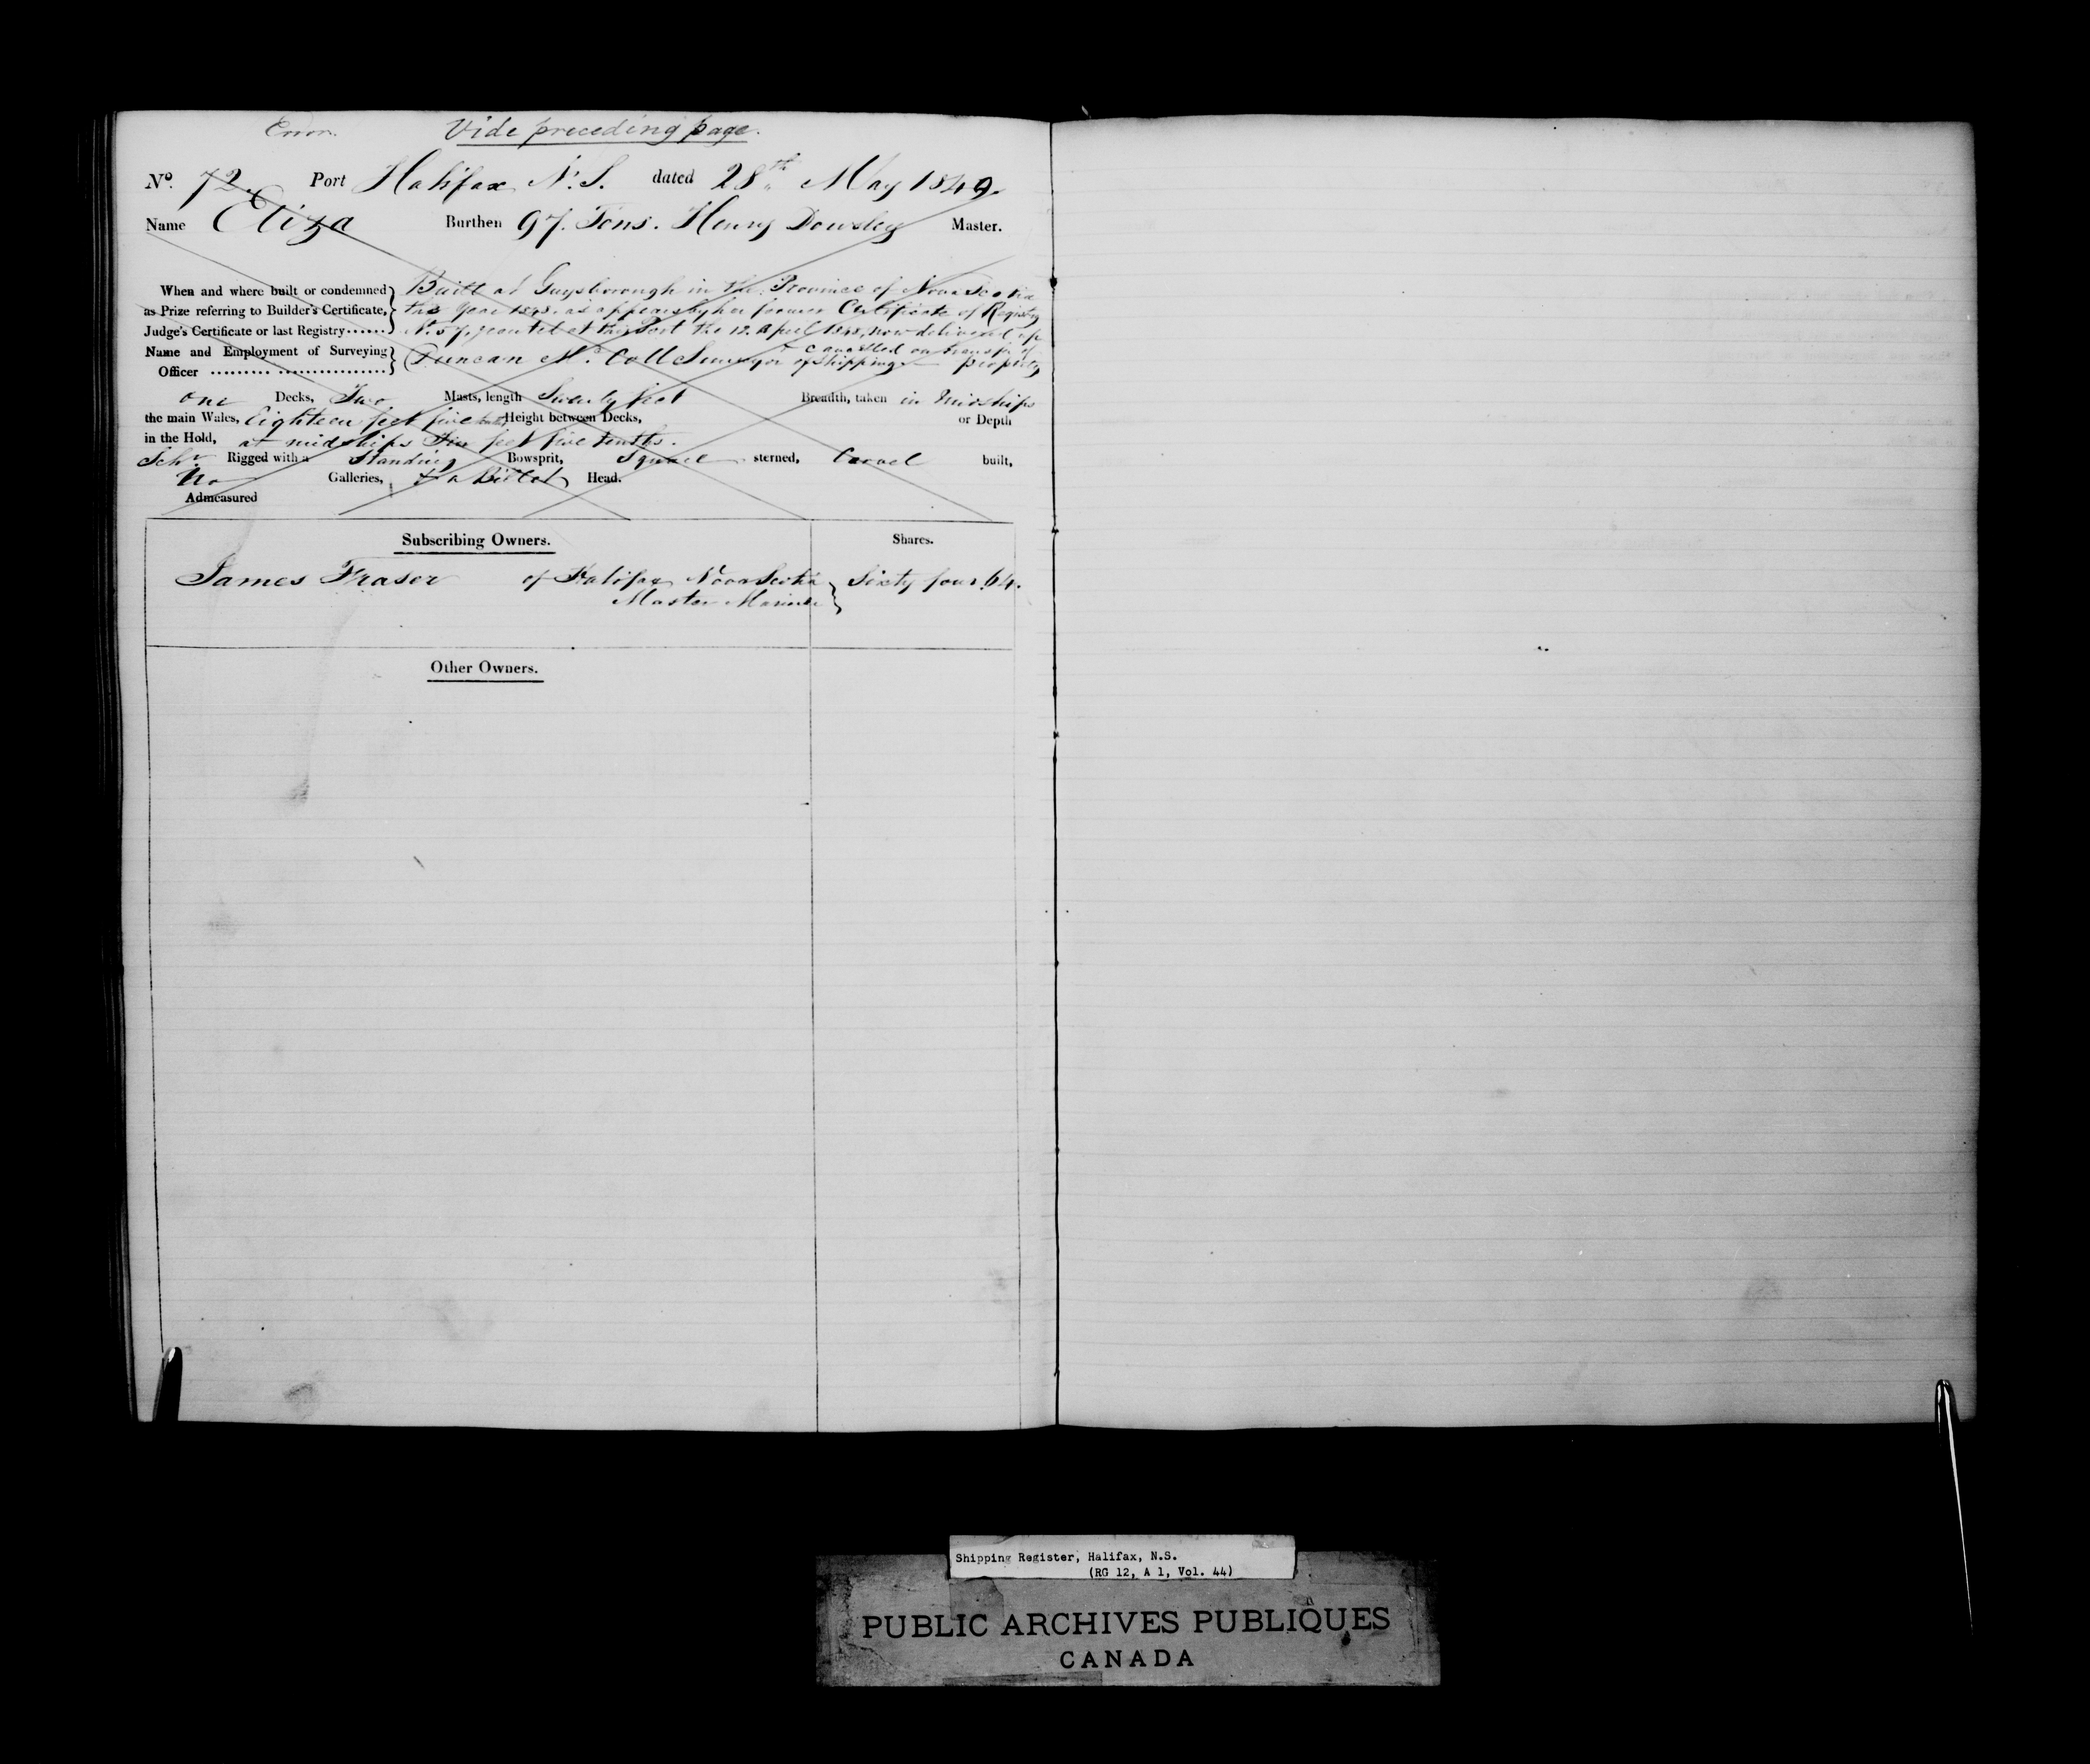 Error. Vide preceding page.
No. 72. Port Halifax N.S. dated 28th May 1849
Name Eliza Burthen 97. Tons. Henry Dowsley Master.
When and where built or condemned Built at Guysborough in the Province of Nova Scotia
as Prize referring to Builder's Certificate, the Year as appears by her former Certificate of Registry
Judge's Certificate or last Registry...... No. 57, granted at this Port the 12. April 1848, now delivered up
Name and Employment of Surveying cancelled on transfer of
Officer ......... ................ Duncan McColl Surveyor of Shipping property
One Decks, Two Masts, length Twenty feet Breadth, taken in Midships
the main Wales, Eighteen feet five Height between Decks, or Depth
in the Hold, at midships feet five tenths.
Schr. Rigged with a Standing Bowsprit, Square sterned, Carvel built,
No Galleries, & a Billet Head.
Admeasured
Subscribing Owners. Shares.
James Fraser of Halifax Nova Scotia Sixty four. 64.
Master Mariner
Other Owners.
Shipping Register, Halifax, N.S.
(RG 12, A 1, Vol. 44)
PUBLIC ARCHIVES PUBLIQUES
CANADA